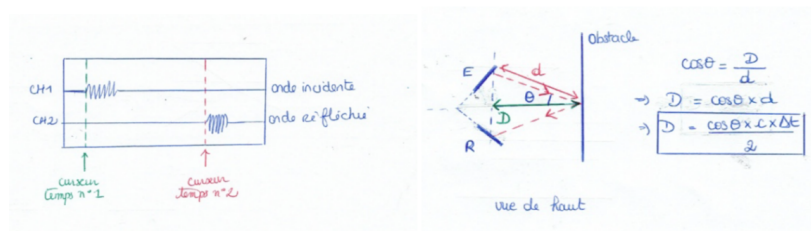 CH1
onde incidente
CH2
onde réfléchie
curseur
temps n°1
curseur
temps n°2
obstacle
E
d
θ
D
R
vue de haut
cosθ = D/d
⇒ D = cosθ × d
⇒ D = cosθ × c × Δt / 2